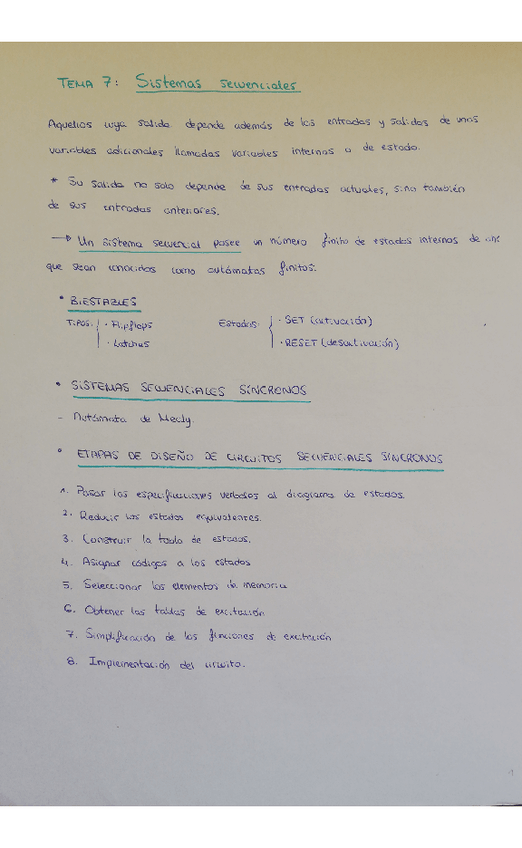 TEMA 7: Sistemas secuenciales
Aquellos cuya salida depende además de las entradas y salidas de unas
variables adicionales llamadas variables internas o de estado.
* Su salida no solo depende de sus entradas actuales, sino también
de sus entradas anteriores.
→ Un sistema secuencial posee un número finito de estados internos de
que sean conocidos como autómatas finitos.
• BIESTABLES
Tipos: · Flipflops Estados: · SET (activación)
· Latches · RESET (desactivación)
• SISTEMAS SECUENCIALES SÍNCRONOS
- Autómata de Mealy.
• ETAPAS DE DISEÑO DE CIRCUITOS SECUENCIALES SÍNCRONOS
1. Pasar las especificaciones verbales al diagrama de estados.
2. Reducir los estados equivalentes.
3. Construir la tabla de estados.
4. Asignar códigos a los estados
5. Seleccionar los elementos de memoria
6. Obtener las tablas de excitación
7. Simplificación de las funciones de excitación
8. Implementación del circuito.